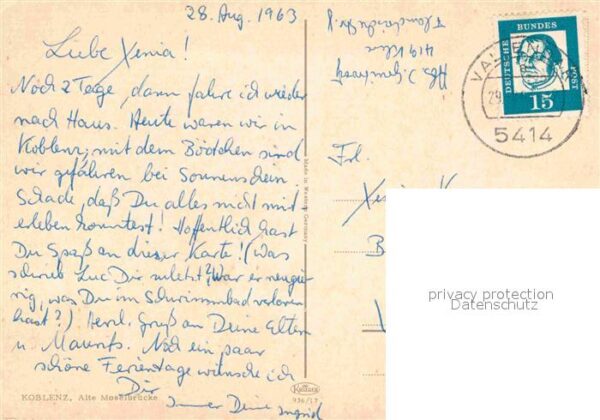 28. Aug. 1963
Liebe Xenia!
Noch 2 Tage, dann fahre ich wieder
nach Haus. Heute waren wir in
Koblenz; mit dem Bötchen sind
wir gefahren bei Sonnenschein
Schade, daß Du alles nicht mit
erleben konntest! Hoffentlich hast
Du Spaß an dieser Karte! (Was
schrieb Luc Dir zuletzt? War er neugie
rig, was Du im Schwimmbad verloren
hast?) Herzl. Gruß an Deine Eltern
u. Noch ein paar
schöne Ferientage wünsche ich
Dir
Immer Deine Ingrid
KOBLENZ, Alte Moselbrücke
Made in Western Germany
Krüger
936/17
Abs.
419 Kleve
8
DEUTSCHE BUNDESPOST
15
VALL
29.
5414
Frl.
Xenia K
B
privacy protection
Datenschutz